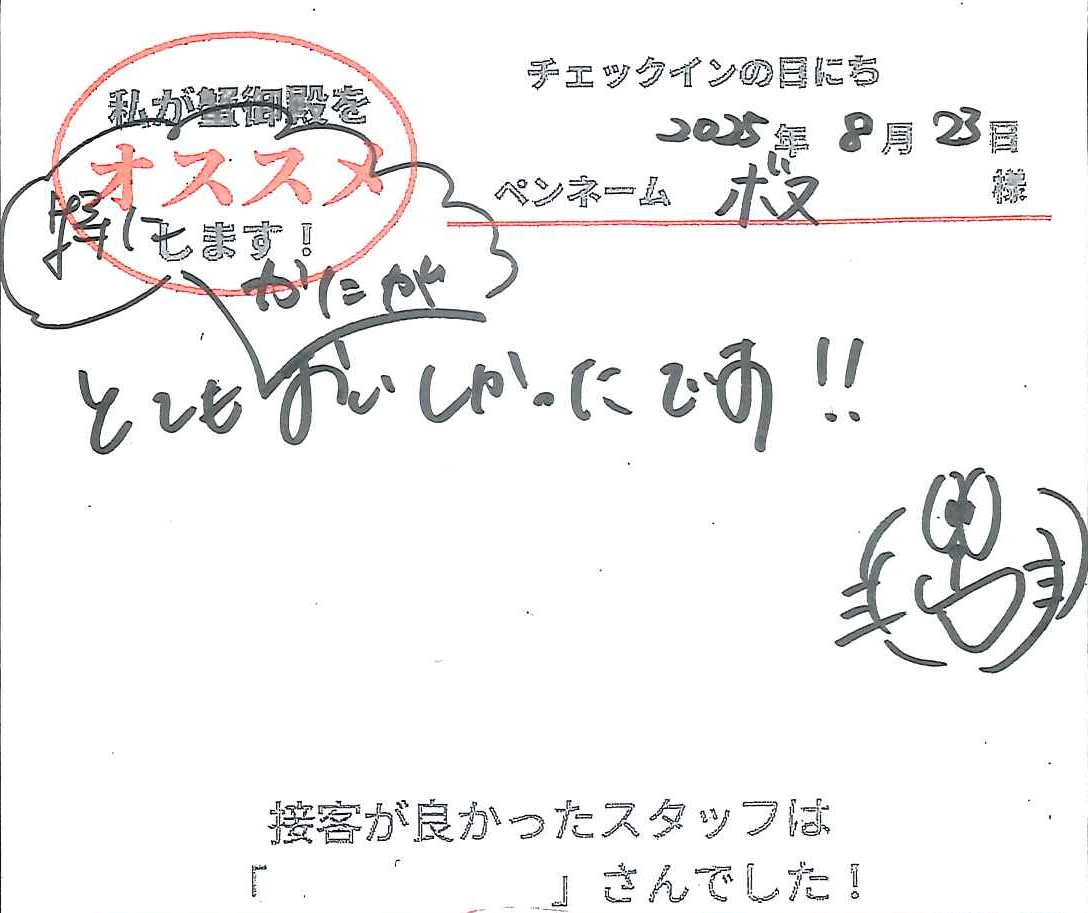 チェックインの日にち
私が蟹御殿を
オススメ
します！
2025年 8月 23日
ペンネーム ボス 様
特に
かにが
とても おいしかったです!!
接客が良かったスタッフは
「 」さんでした！